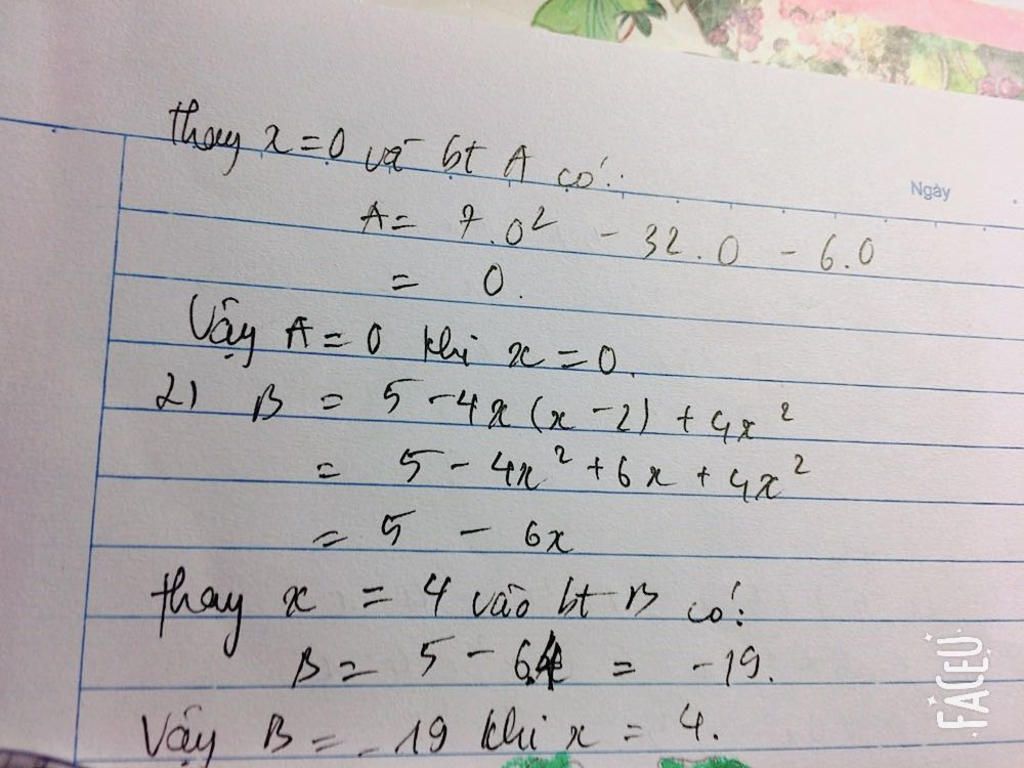 thay x = 0 và bt A có:
Ngày
A = 7.0² - 32.0 - 6.0
= 0.
Vậy A = 0 khi x = 0.
2) B = 5 - 4x(x - 2) + 4x²
= 5 - 4x² + 6x + 4x²
= 5 - 6x
thay x = 4 vào bt B có:
B = 5 - 6.4 = -19.
Vậy B = -19 khi x = 4.
FACEU